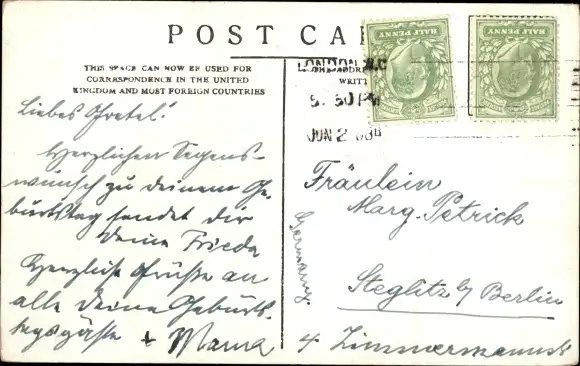 POST CA
THIS SPACE CAN NOW BE USED FOR
CORRESPONDENCE IN THE UNITED
KINGDOM AND MOST FOREIGN COUNTRIES
HALF PENNY
HALF PENNY
LONDON W.C
ADDR
WRITT
5.30 PM
JUN 2 08
Liebes Gretel!
Herzlichen Segens-
wunsch zu deinem Ge-
burtstag sendet dir
Deine Frieda
Herzliche Grüße an
alle deine Geburts-
tagsgäste + Mama
Fräulein
Marg. Petrick
Steglitz b/ Berlin
4 Zimmermannstr
Germany.